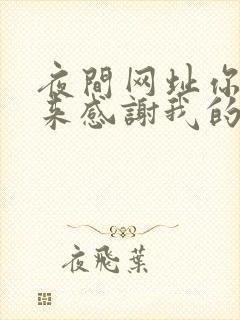 夜間网址你
来感謝我的
夜飛葉